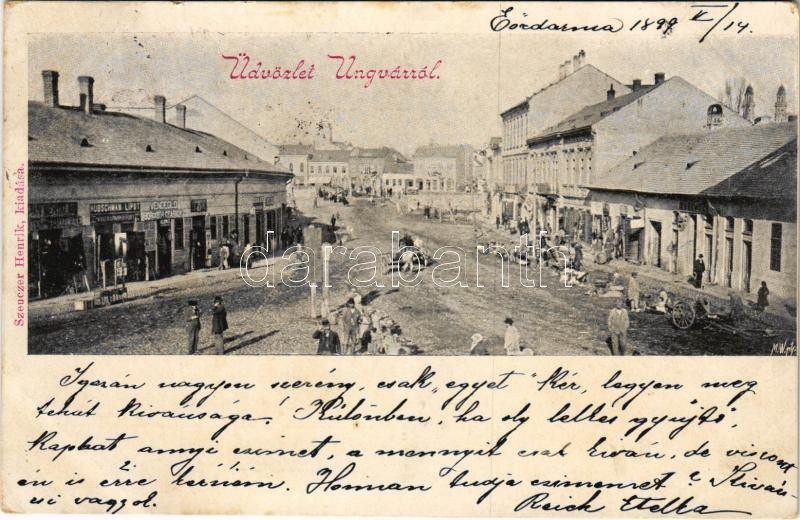 Eördarma 1899 V/14.
Üdvözlet Ungvárról.
Szenczer Henrik, kiadása.
HUBSCHMAN LIPOT
VENDÉGLŐ
darabanth
Igazán nagyon szerény, csak "egyet" kér, legyen meg
tehát kivánsága! Különben, ha oly lelkes gyűjtő,
kaphat annyi czimet, a mennyit csak kiván, de viszont
én is erre kérném. Honnan tudja czimemet? Kiván-
csi vagyok.
Reich Etelka